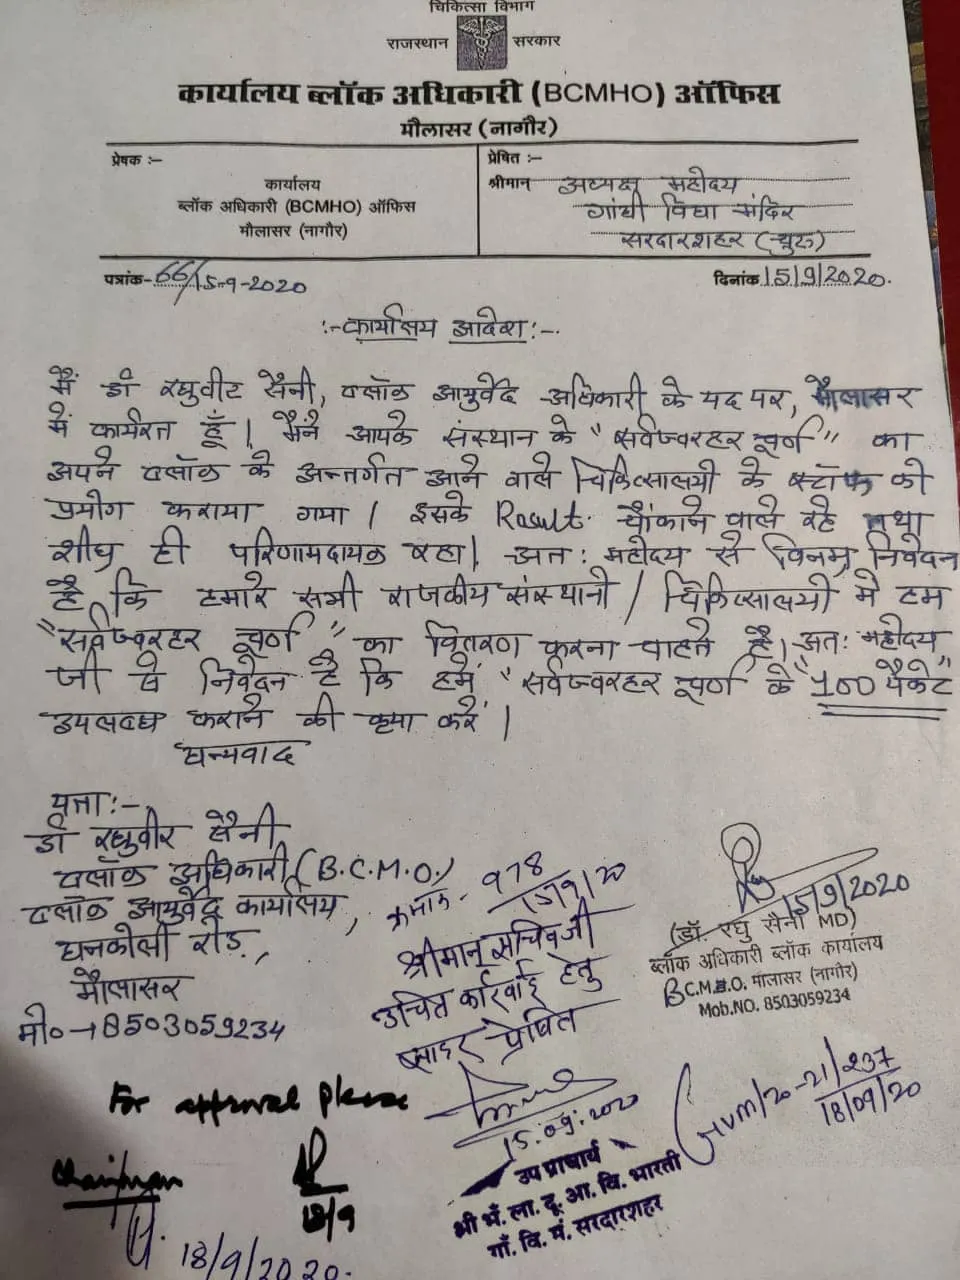 चिकित्सा विभाग
राजस्थान सरकार
कार्यालय ब्लॉक अधिकारी (BCMHO) ऑफिस
मौलासर (नागौर)
प्रेषक :–
कार्यालय
ब्लॉक अधिकारी (BCMHO) ऑफिस
मौलासर (नागौर)
प्रेषित :–
श्रीमान् अध्यक्ष महोदय
गांधी विद्या मंदिर
सरदारशहर (चूरू)
पत्रांक- 66/15-9-2020
दिनांक 15/9/2020.
:- कार्यालय आदेश :-
मैं डॉ रघुवीर सैनी, ब्लॉक आयुर्वेद अधिकारी के पद पर, मौलासर
में कार्यरत हूँ। मैने आपके संस्थान के "सर्वज्वरहर चूर्ण" का
अपने ब्लॉक के अन्तर्गत आने वाले चिकित्सालयों के स्टॉफ को
प्रयोग कराया गया। इसके Result चौंकाने वाले रहे तथा
शीघ्र ही परिणामदायक रहा। अत: महोदय से विनम्र निवेदन
है कि हमारे सभी राजकीय संस्थानो / चिकित्सालयो मे हम
"सर्वज्वरहर चूर्ण" का वितरण करना चाहते है। अत: महोदय
जी से निवेदन है कि हमें "सर्वज्वरहर चूर्ण के "100 पैकेट"
उपलब्ध कराने की कृपा करें।
धन्यवाद
पत्ता:-
डॉ रघुवीर सैनी
ब्लॉक अधिकारी (B.C.M.O.)
ब्लॉक आयुर्वेद कार्यालय,
धनकोली रोड़,
मौलासर
मो० → 8503059234
क्रमांक - 978
15/9/20
श्रीमान् सचिव जी
उचित कार्रवाई हेतु
सादर प्रेषित
15.09.2020
उप प्राचार्य
श्री भँ. ला. दू. आ. वि. भारती
गाँ. वि. मं. सरदारशहर
15/9/2020
(डॉ. रघु सैनी MD)
ब्लॉक अधिकारी ब्लॉक कार्यालय
B.C.M.O. मौलासर (नागौर)
Mob.NO. 8503059234
GVM/20-21/237
18/09/20
For approval please
Chairman
18/9
18/9/2020.